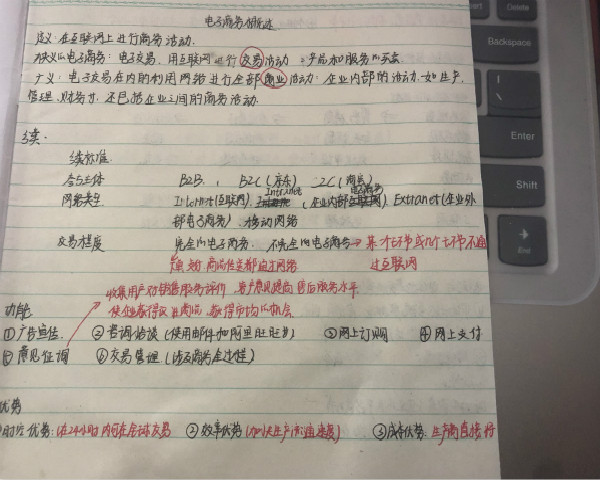 电子商务概述
定义:在互联网上进行商务活动.
狭义的电子商务:电子交易、用互联网进行交易活动 产品和服务的买卖
广义:电子交易在内的利用网络进行全部商业活动:企业内部的活动.如生产.
管理、财务等.还包括企业之间的商务活动.
续.
续标准.
参与主体 B2B、 B2C(京东) C2C(淘宝)
网络类型 Internet(互联网). Intranet (企业内部电子商务). Extranet(企业外
部电子商务). 移动网络
交易程度 完全的电子商务、不完全的电子商务→某个环节或几个环节不通
商品信息都通过网络 过互联网
收集用户对销售服务评价、客户意见提高售后服务水平.
使企业获得改进商品、获得市场的机会
功能
①广告宣传 ②咨询洽谈(使用邮件和阿里旺旺等) ③网上订购 ④网上支付
⑤意见征询 ⑥交易管理(涉及商务全过程)
优势
时空优势:(在24小时内可在全球交易 ②效率优势(加快生产流通速度) ③成本优势:生产商直接将
Delete
Backspace
Enter
Shift
End